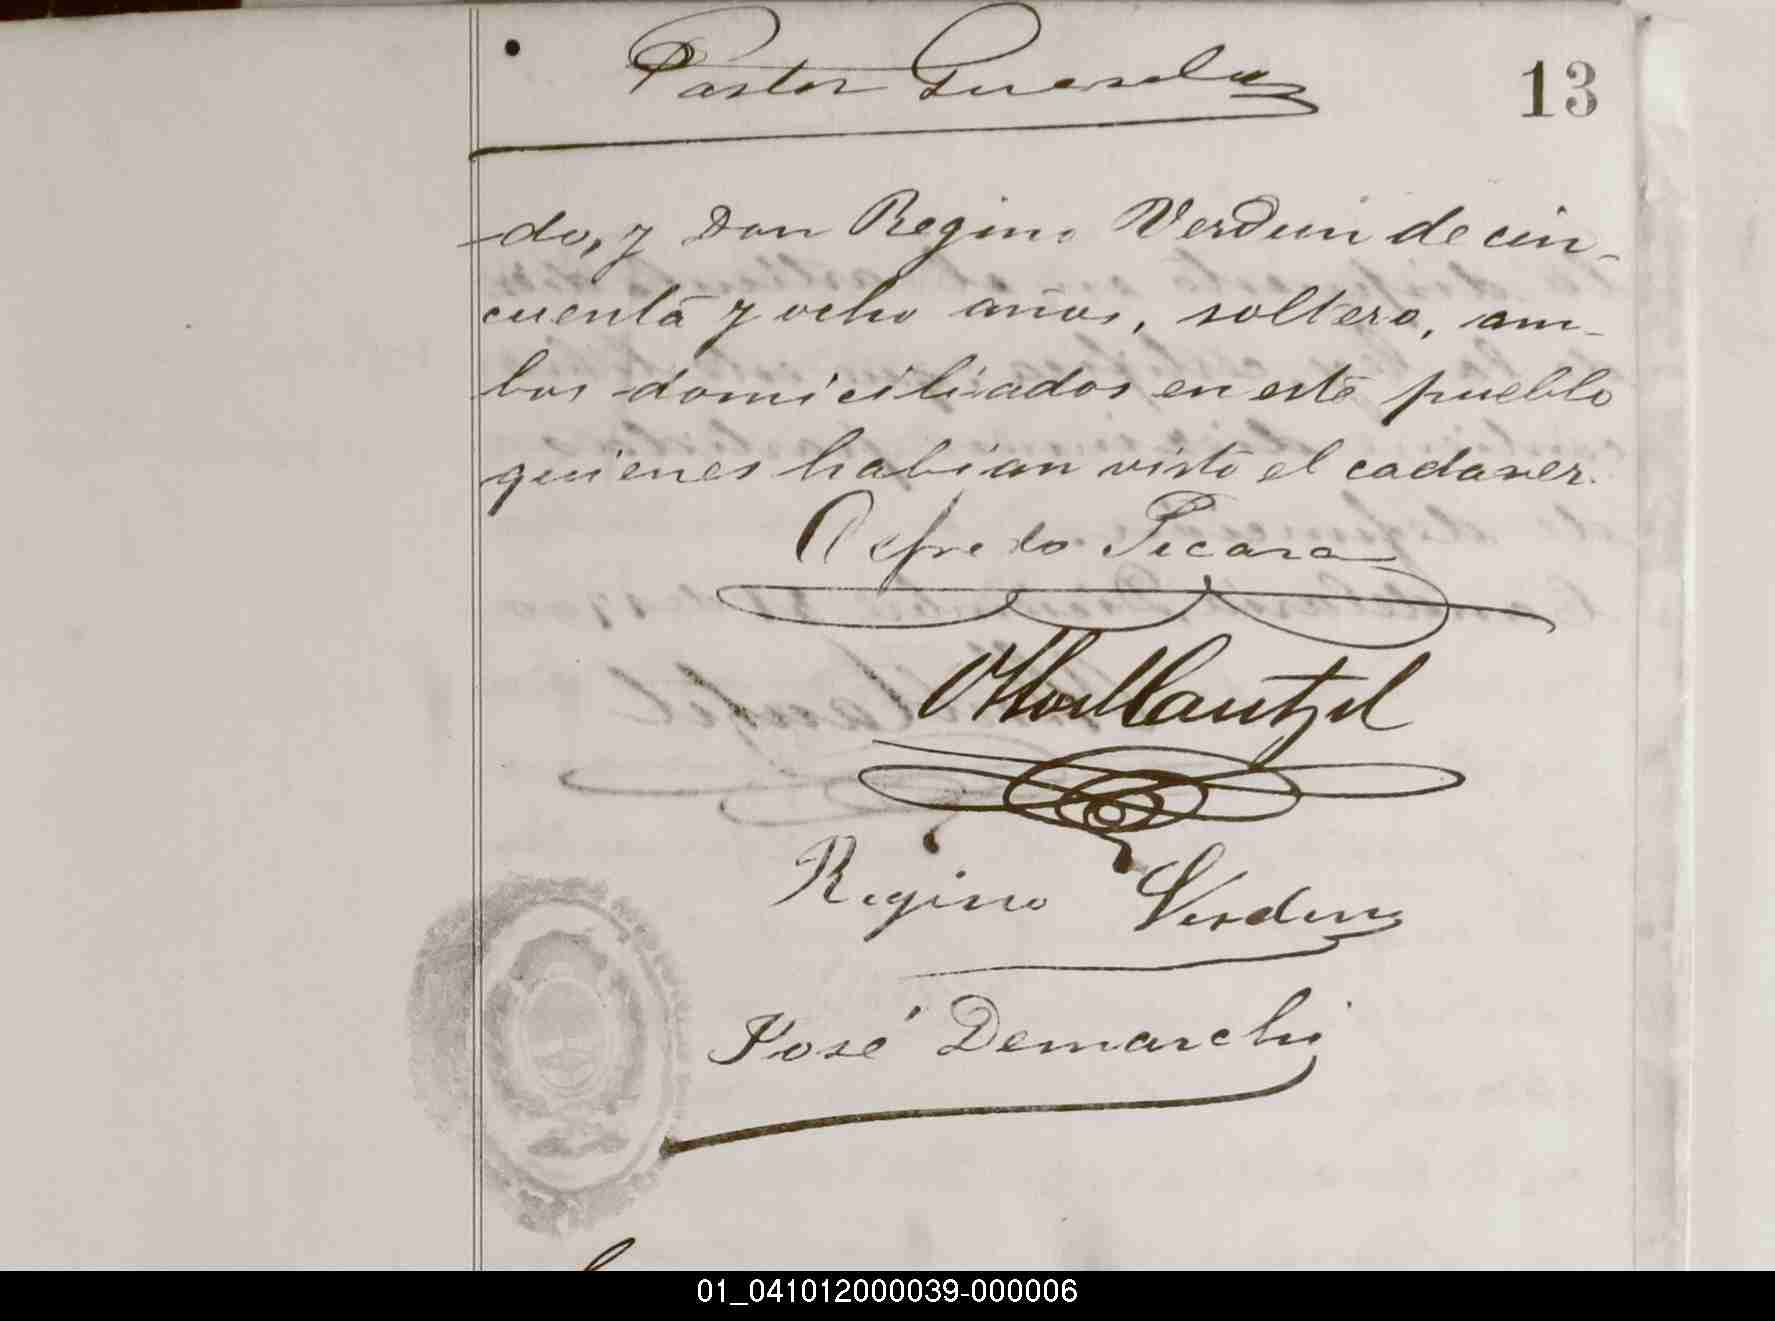 Pastor
13
do, y Don Regino Verdun de cin-
cuenta y ocho años, soltero, am-
bos domiciliados en este pueblo
quienes habian visto el cadaver.
Alfredo Picasa
Regino Verdun
José Demarchi
01_041012000039-000006